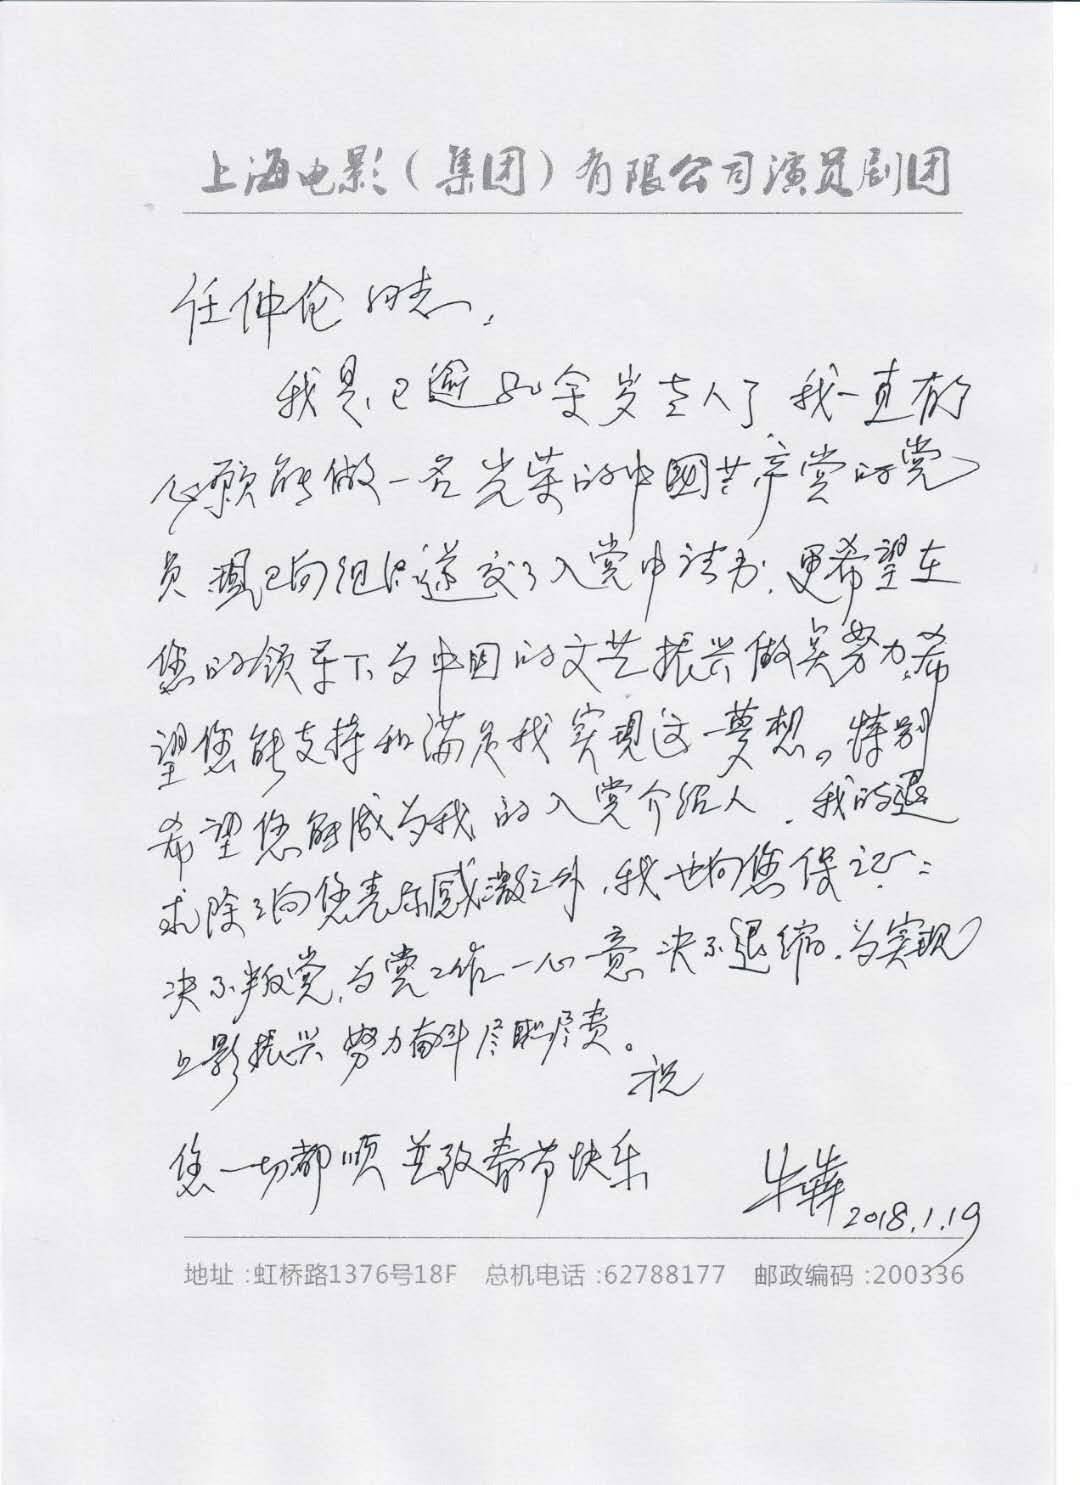 上海电影（集团）有限公司演员剧团
任仲伦同志，
我是已逾80余岁老人了 我一直有个
心愿能做一名光荣的中國共产党的党
员 現已向组织递交了入党申请书，更希望在
您的领导下为中国的文艺振兴做点努力，希
望您能支持和满足我实现这一夢想。特别
希望您能成为我的入党介绍人，我的追
求除了向您表示感激之外，我也向您保证：
决不叛党，为党工作一心一意 决不退缩，为实现
上影振兴 努力奋斗 尽职尽责。
祝
您一切都顺 并致春节快乐
牛犇 2018.1.19
地址：虹桥路1376号18F 总机电话：62788177 邮政编码：200336